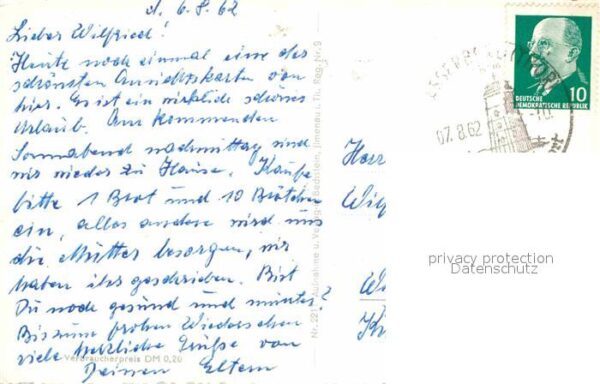 d. 6.8.62
Lieber Wilfried!
Heute noch einmal eine der
schönsten Ansichtskarten von
hier. Es ist ein wirklich schöner
Urlaub. Am kommenden
Sonnabend nachmittag sind
wir wieder zu Hause. Kaufe
bitte 1 Brot und 10 Brötchen
ein, alles andere wird uns
die Mutter besorgen, wir
haben ihr geschrieben. Bist
Du noch gesund und munter?
Bis zum frohen Wiedersehen
viele herzliche Grüße von
Deinen Eltern
Verbraucherpreis DM 0,20
Nr. 221 Aufnahme u. Verlag Bedstein, Jlmenau i. Th. Reg. Nr. 9
DEUTSCHE
DEMOKRATISCHE REPUBLIK
10
07.8.62
Herr
privacy protection
Datenschutz